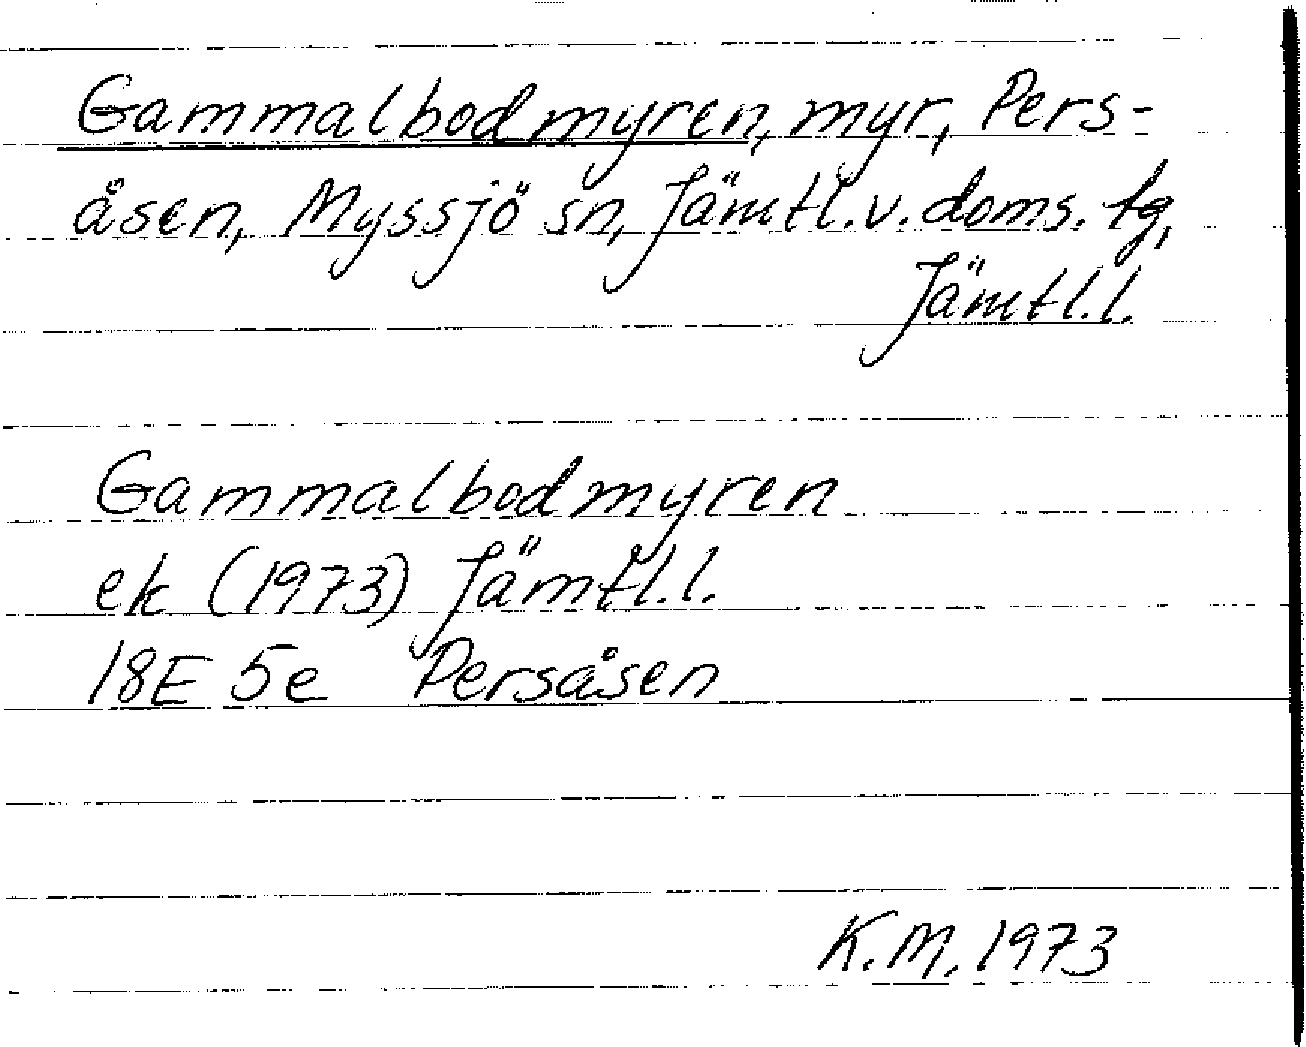 Gammalbodmyren, myr, Pers-
åsen, Myssjö sn, Jämtl. v. doms. tg,
Jämtl. l.
Gammalbodmyren
ek (1973) Jämtl. l.
18E 5e Persåsen
K.M. 1973